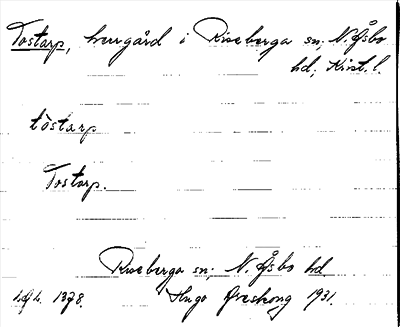 Tostarp, herrgård i Riseberga sn; N. Åsbo
hd; Krist. l.
tòstarp
Tostarp.
Riseberga sn; N. Åsbo hd.
1378. Hugo Areskoug 1931.